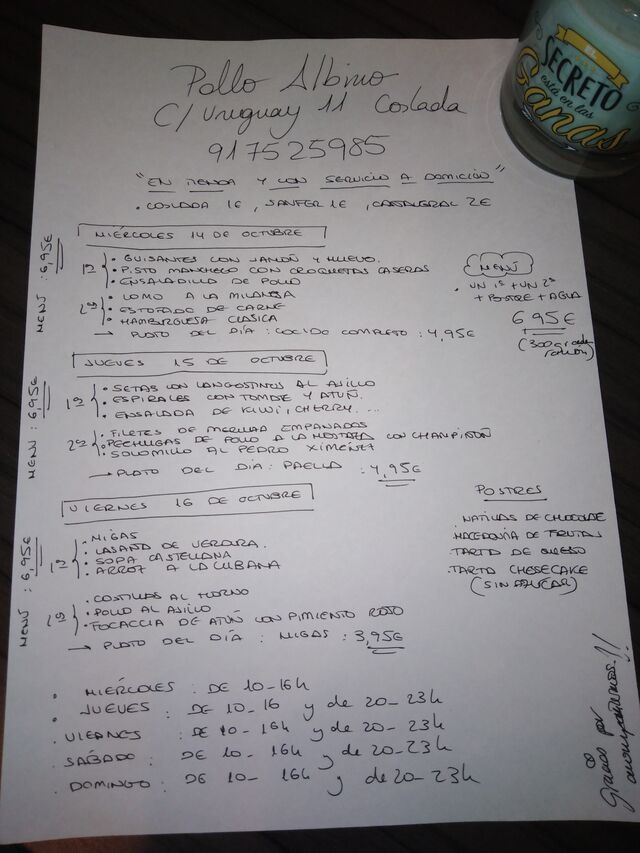 Pollo Albino
C/ Uruguay 11 Coslada
917525985
"EN TIENDA Y CON SERVICIO A DOMICILIO"
. COSLADA 1€, SANFER 1€, 2€
MIÉRCOLES 14 DE OCTUBRE
MENÚ : 6,95€
1º
· GUISANTES CON JAMÓN Y HUEVO.
· PISTO MANCHEGO CON CROQUETAS CASERAS
· ENSALADILLA DE POLLO
2º
· LOMO A LA MILANESA
· ESTOFADO DE CARNE
· HAMBURGUESA CLASICA
→ PLATO DEL DÍA : COCIDO COMPLETO : 4,95€
MENÚ
· UN 1º + UN 2º
+ POSTRE + AGUA
6 95€
(300gr de
JUEVES 15 DE OCTUBRE
MENÚ : 6,95€
1º
· SETAS CON LANGOSTINOS AL AJILLO
· ESPIRALES CON TOMATE Y ATÚN
· ENSALADA DE KIWI, CHERRY ...
2º
· FILETES DE MERLUZA EMPANADOS
· PECHUGAS DE POLLO A LA MOSTAZA CON CHAMPIÑÓN
· SOLOMILLO AL PEDRO XIMÉNEZ
→ PLATO DEL DIA : PAELLA : 4,95€
VIERNES 16 DE OCTUBRE
MENÚ : 6,95€
1º
· MIGAS
· LASAÑA DE VERDURA.
· SOPA CASTELLANA
· ARROZ A LA CUBANA
2º
· COSTILLAS AL HORNO
· POLLO AL AJILLO
· FOCACCIA DE ATÚN CON PIMIENTO ROJO
→ PLATO DEL DÍA : MIGAS : 3,95€
POSTRES
. NATILLAS DE CHOCOLATE
. MACEDONIA DE FRUTAS
. TARTA DE QUESO
. TARTA CHESECAKE
(SIN AZUCAR)
· MIÉRCOLES : DE 10-16h
· JUEVES : DE 10-16 y de 20-23h
· VIERNES : DE 10-16h y de 20-23h
· SÁBADO : DE 10-16h y de 20-23h
· DOMINGO : DE 10-16h y de 20-23h
Gracias por
acompañarnos!!
EL
SECRETO
está en las
Ganas